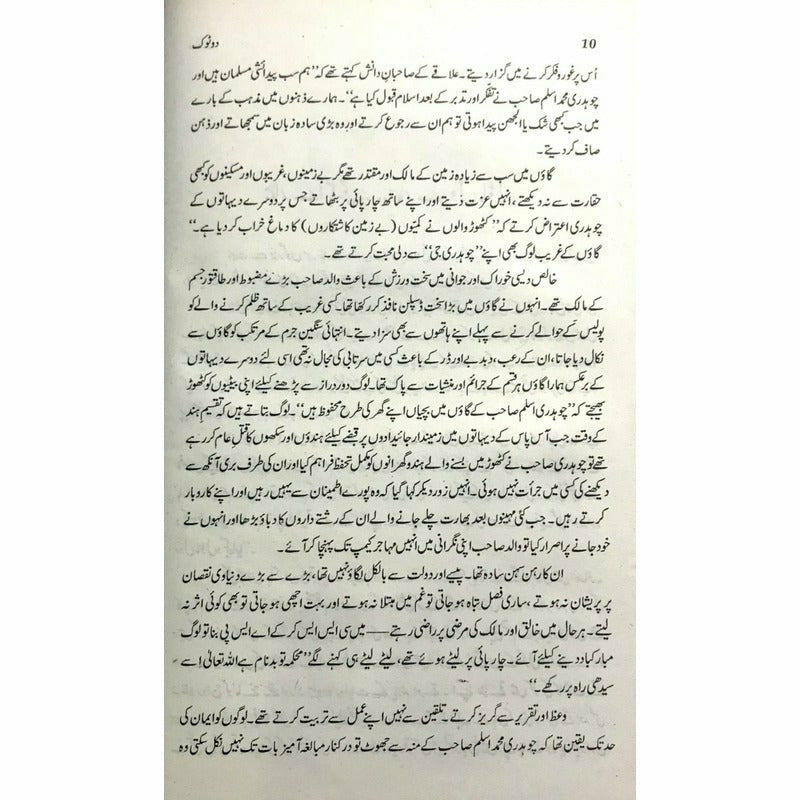 10
دوٹوک
اُس پر غور و فکر کرنے میں گزار دیتے۔ علاقے کے صاحبانِ دانش کہتے تھے کہ ”ہم سب پیدائشی مسلمان ہیں اور
چوہدری محمد اسلم صاحب نے تفکّر اور تدبر کے بعد اسلام قبول کیا ہے“۔ ہمارے ذہنوں میں مذہب کے بارے
میں جب کبھی شک یا الجھن پیدا ہوتی تو ہم ان سے رجوع کرتے اور وہ بڑی سادہ زبان میں سمجھاتے اور ذہن
صاف کر دیتے۔
گاؤں میں سب سے زیادہ زمین کے مالک اور مقتدر تھے مگر بے زمینوں، غریبوں اور مسکینوں کو کبھی
حقارت سے نہ دیکھتے، انہیں عزت دیتے اور اپنے ساتھ چارپائی پر بٹھاتے جس پر دوسرے دیہاتوں کے
چوہدری اعتراض کرتے کہ ”کٹھوڑ والوں نے کمیّوں (بے زمین کاشتکاروں) کا دماغ خراب کر دیا ہے۔“
گاؤں کے غریب لوگ بھی اپنے ”چوہدری جی“ سے دلی محبت کرتے تھے۔
خالص دیسی خوراک اور جوانی میں سخت ورزش کے باعث والد صاحب بڑے مضبوط اور طاقتور جسم
کے مالک تھے۔ انہوں نے گاؤں میں بڑا سخت ڈسپلن نافذ کر رکھا تھا۔ کسی غریب کے ساتھ ظلم کرنے والے کو
پولیس کے حوالے کرنے سے پہلے اپنے ہاتھوں سے بھی سزا دیتے۔ انتہائی سنگین جرم کے مرتکب کو گاؤں سے
نکال دیا جاتا، ان کے رعب، دبدبے اور ڈر کے باعث کسی میں سرتابی کی مجال نہ تھی اسی لئے دوسرے دیہاتوں
کے برعکس ہمارا گاؤں ہر قسم کے جرائم اور منشیات سے پاک تھا۔ لوگ دور دراز سے پڑھنے کیلئے اپنی بیٹیوں کو کٹھوڑ
بھیجتے کہ ”چوہدری اسلم صاحب کے گاؤں میں بچیاں اپنے گھر کی طرح محفوظ ہیں“۔ لوگ بتاتے ہیں کہ تقسیمِ ہند
کے وقت جب آس پاس کے دیہاتوں میں زمیندار جائیدادوں پر قبضے کیلئے ہندوؤں اور سکھوں کا قتلِ عام کر رہے
تھے تو چوہدری صاحب نے کٹھوڑ میں بسنے والے ہندو گھرانوں کو مکمل تحفظ فراہم کیا اور ان کی طرف بری آنکھ سے
دیکھنے کی کسی میں جرأت نہیں ہوئی۔ انہیں زور دیکر کہا گیا کہ وہ پورے اطمینان سے یہیں رہیں اور اپنے کاروبار
کرتے رہیں۔ جب کئی مہینوں بعد بھارت چلے جانے والے ان کے رشتے داروں کا دباؤ بڑھا اور انہوں نے
خود جانے پر اصرار کیا تو والد صاحب اپنی نگرانی میں انہیں مہاجر کیمپ تک پہنچا کر آئے۔
ان کا رہن سہن سادہ تھا۔ پیسے اور دولت سے بالکل لگاؤ نہیں تھا، بڑے سے بڑے دنیاوی نقصان
پر پریشان نہ ہوتے، ساری فصل تباہ ہو جاتی تو غم میں مبتلا نہ ہوتے اور بہت اچھی ہو جاتی تو بھی کوئی اثر نہ
لیتے۔ ہر حال میں خالق اور مالک کی مرضی پر راضی رہتے —— میں سی ایس ایس کر کے اے ایس پی بنا تو لوگ
مبارکباد دینے کیلئے آئے۔ چارپائی پر لیٹے ہوئے تھے، لیٹے لیٹے ہی کہنے لگے ”محکمہ تو بدنام ہے اللہ تعالیٰ اِسے
سیدھی راہ پر رکھے۔“
وعظ اور تقریر سے گریز کرتے۔ تلقین سے نہیں اپنے عمل سے تربیت کرتے تھے۔ لوگوں کو ایمان کی
حد تک یقین تھا کہ چوہدری محمد اسلم صاحب کے منہ سے جھوٹ تو درکنار مبالغہ آمیز بات تک نہیں نکل سکتی وہ